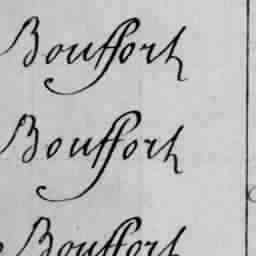 Bouffort
Bouffort
Bouffort